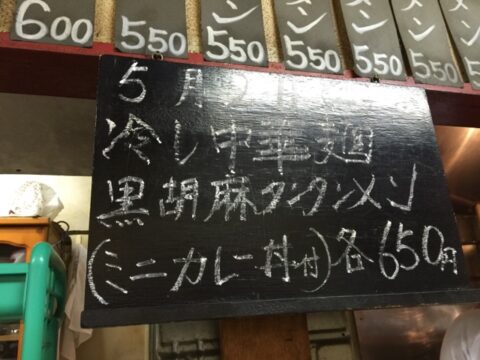 600 550 550 550 550 550 550
5月
冷し中華麺
黒胡麻タンタンメン
(ミニカレー丼付)各650円